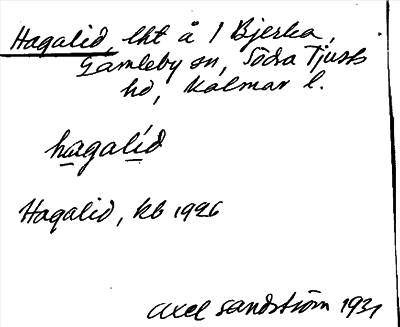 Hagalid, lht å 1 Bjerka,
Gamleby sn, Södra Tjusts
hd, Kalmar l.
hagalíd
Hagalid, kb 1926
Axel Sandström 1931